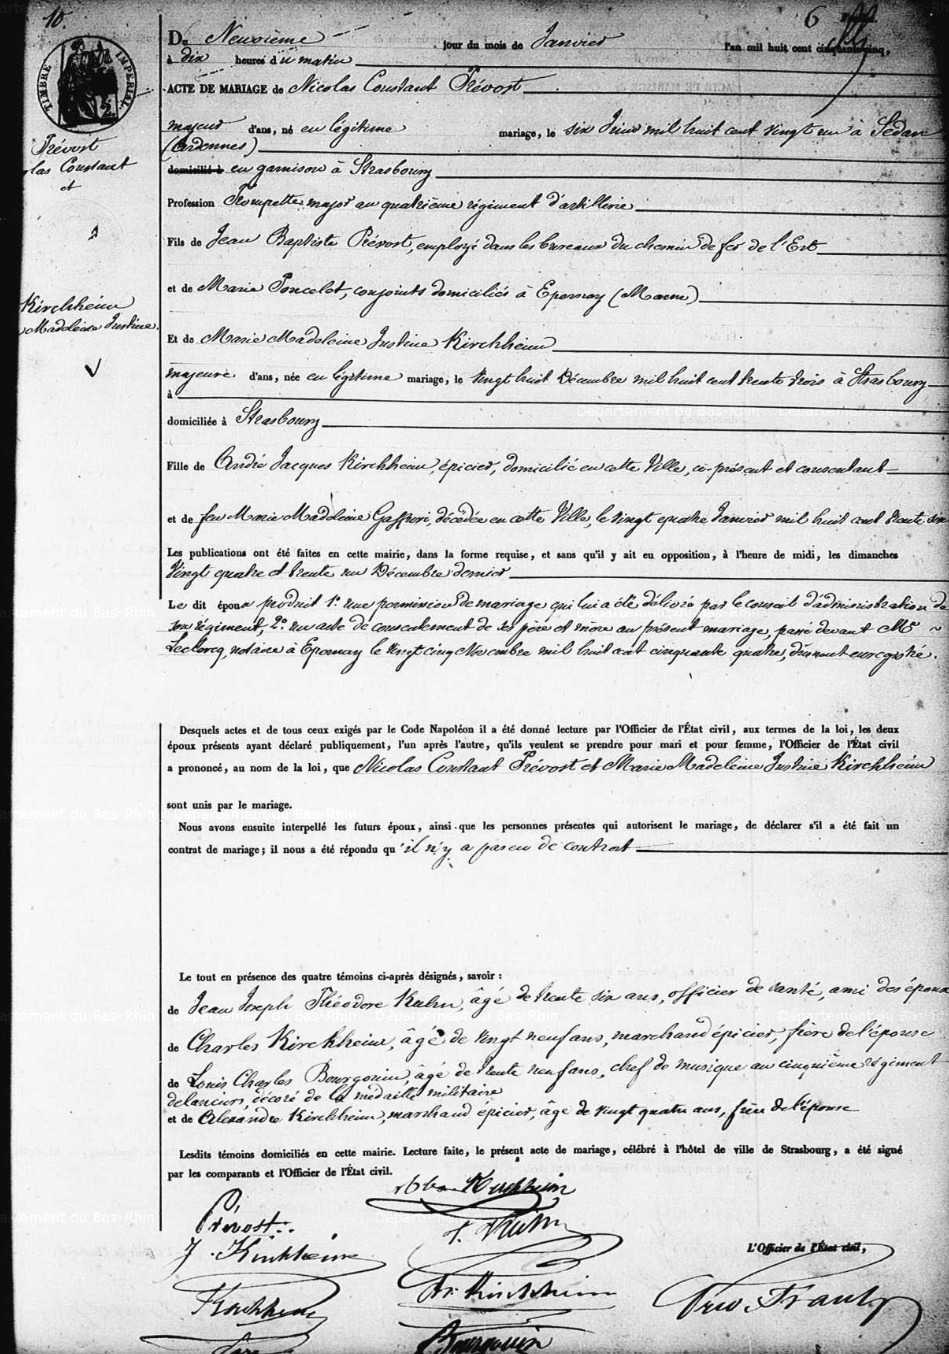 10.
6
TIMBRE IMPERIAL
Du Neuvième jour du mois de Janvier l'an mil huit cent cinquante cinq,
à dix heures du matin
ACTE DE MARIAGE de Nicolas Constant Prévost
majeur d'ans, né en légitime mariage, le six Juin mil huit cent vingt un à Sédan
(Ardennes)
domicilié à en garnison à Strasbourg
Profession Trompette major au quatrième régiment d'artillerie
Fils de Jean Baptiste Prévost, employé dans les bureaux du chemin de fer de l'Est
et de Marie Poncelet, conjoints domiciliés à Epernay (Marne)
Et de Marie Madeleine Justine Kirchheim
majeure d'ans, née en légitime mariage, le vingt huit Décembre mil huit cent trente trois à Strasbourg
à
domiciliée à Strasbourg
Fille de André Jacques Kirchheim, épicier, domicilié en cette Ville, ci-présent et consentant
et de feu Marie Madeleine Gasseri, décédée en cette Ville, le vingt quatre Janvier mil huit cent trente six
Les publications ont été faites en cette mairie, dans la forme requise, et sans qu'il y ait eu opposition, à l'heure de midi, les dimanches
Vingt quatre et trente un Décembre dernier
Le dit époux a produit 1º une permission de mariage qui lui a été délivrée par le conseil d'administration de
son régiment, 2º un acte de consentement de ses père et mère au présent mariage, passé devant Me
Leclercq, notaire à Epernay le vingt cinq Novembre mil huit cent cinquante quatre, dûment enregistré.
Desquels actes et de tous ceux exigés par le Code Napoléon il a été donné lecture par l'Officier de l'État civil, aux termes de la loi, les deux
époux présents ayant déclaré publiquement, l'un après l'autre, qu'ils veulent se prendre pour mari et pour femme, l'Officier de l'État civil
a prononcé, au nom de la loi, que Nicolas Constant Prévost et Marie Madeleine Justine Kirchheim
sont unis par le mariage.
Nous avons ensuite interpellé les futurs époux, ainsi que les personnes présentes qui autorisent le mariage, de déclarer s'il a été fait un
contrat de mariage; il nous a été répondu qu'il n'y a pas eu de contrat
Le tout en présence des quatre témoins ci-après désignés, savoir :
de Jean Joseph Théodore Kuhn, âgé de trente six ans, officier de santé, ami des époux
de Charles Kirchheim, âgé de vingt neuf ans, marchand épicier, frère de l'épouse
de Louis Charles Bourgouin, âgé de trente neuf ans, chef de musique au cinquième régiment
de lanciers, décoré de la médaille militaire
et de Alexandre Kirchheim, marchand épicier, âgé de vingt quatre ans, frère de l'épouse
Lesdits témoins domiciliés en cette mairie. Lecture faite, le présent acte de mariage, célébré à l'hôtel de ville de Strasbourg, a été signé
par les comparants et l'Officier de l'État civil.
Kirchheim
Prévost
Kuhn
J. Kirchheim
L'Officier de l'État civil,
Kirchheim
Kirchheim
Bourgouin
Prévost
las Constant
et
Kirchheim
Madeleine Justine.
Département du Bas-Rhin